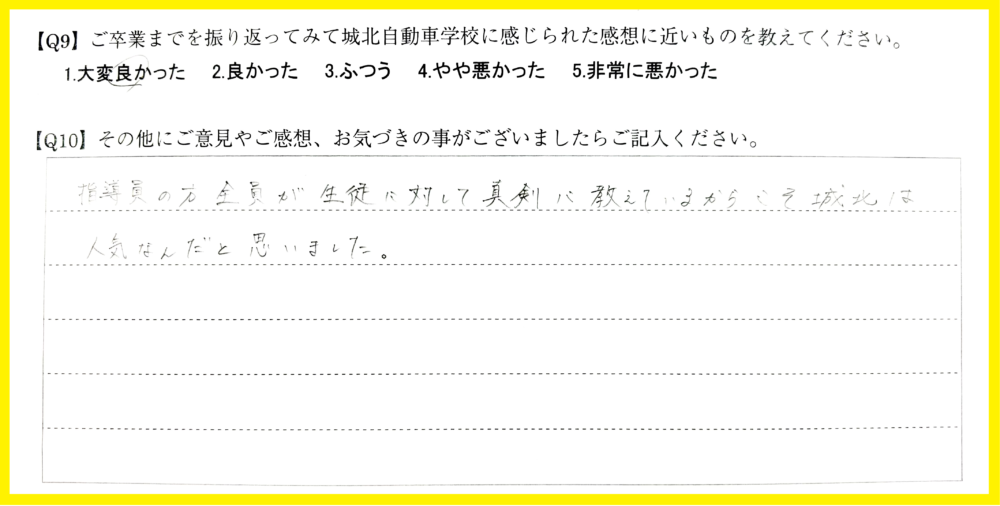 【Q9】ご卒業までを振り返ってみて城北自動車学校に感じられた感想に近いものを教えてください。
1.大変良かった 2.良かった 3.ふつう 4.やや悪かった 5.非常に悪かった
【Q10】その他にご意見やご感想、お気づきの事がございましたらご記入ください。
指導員の方全員が生徒に対して真剣に教えているからこそ城北は
人気なんだと思いました。